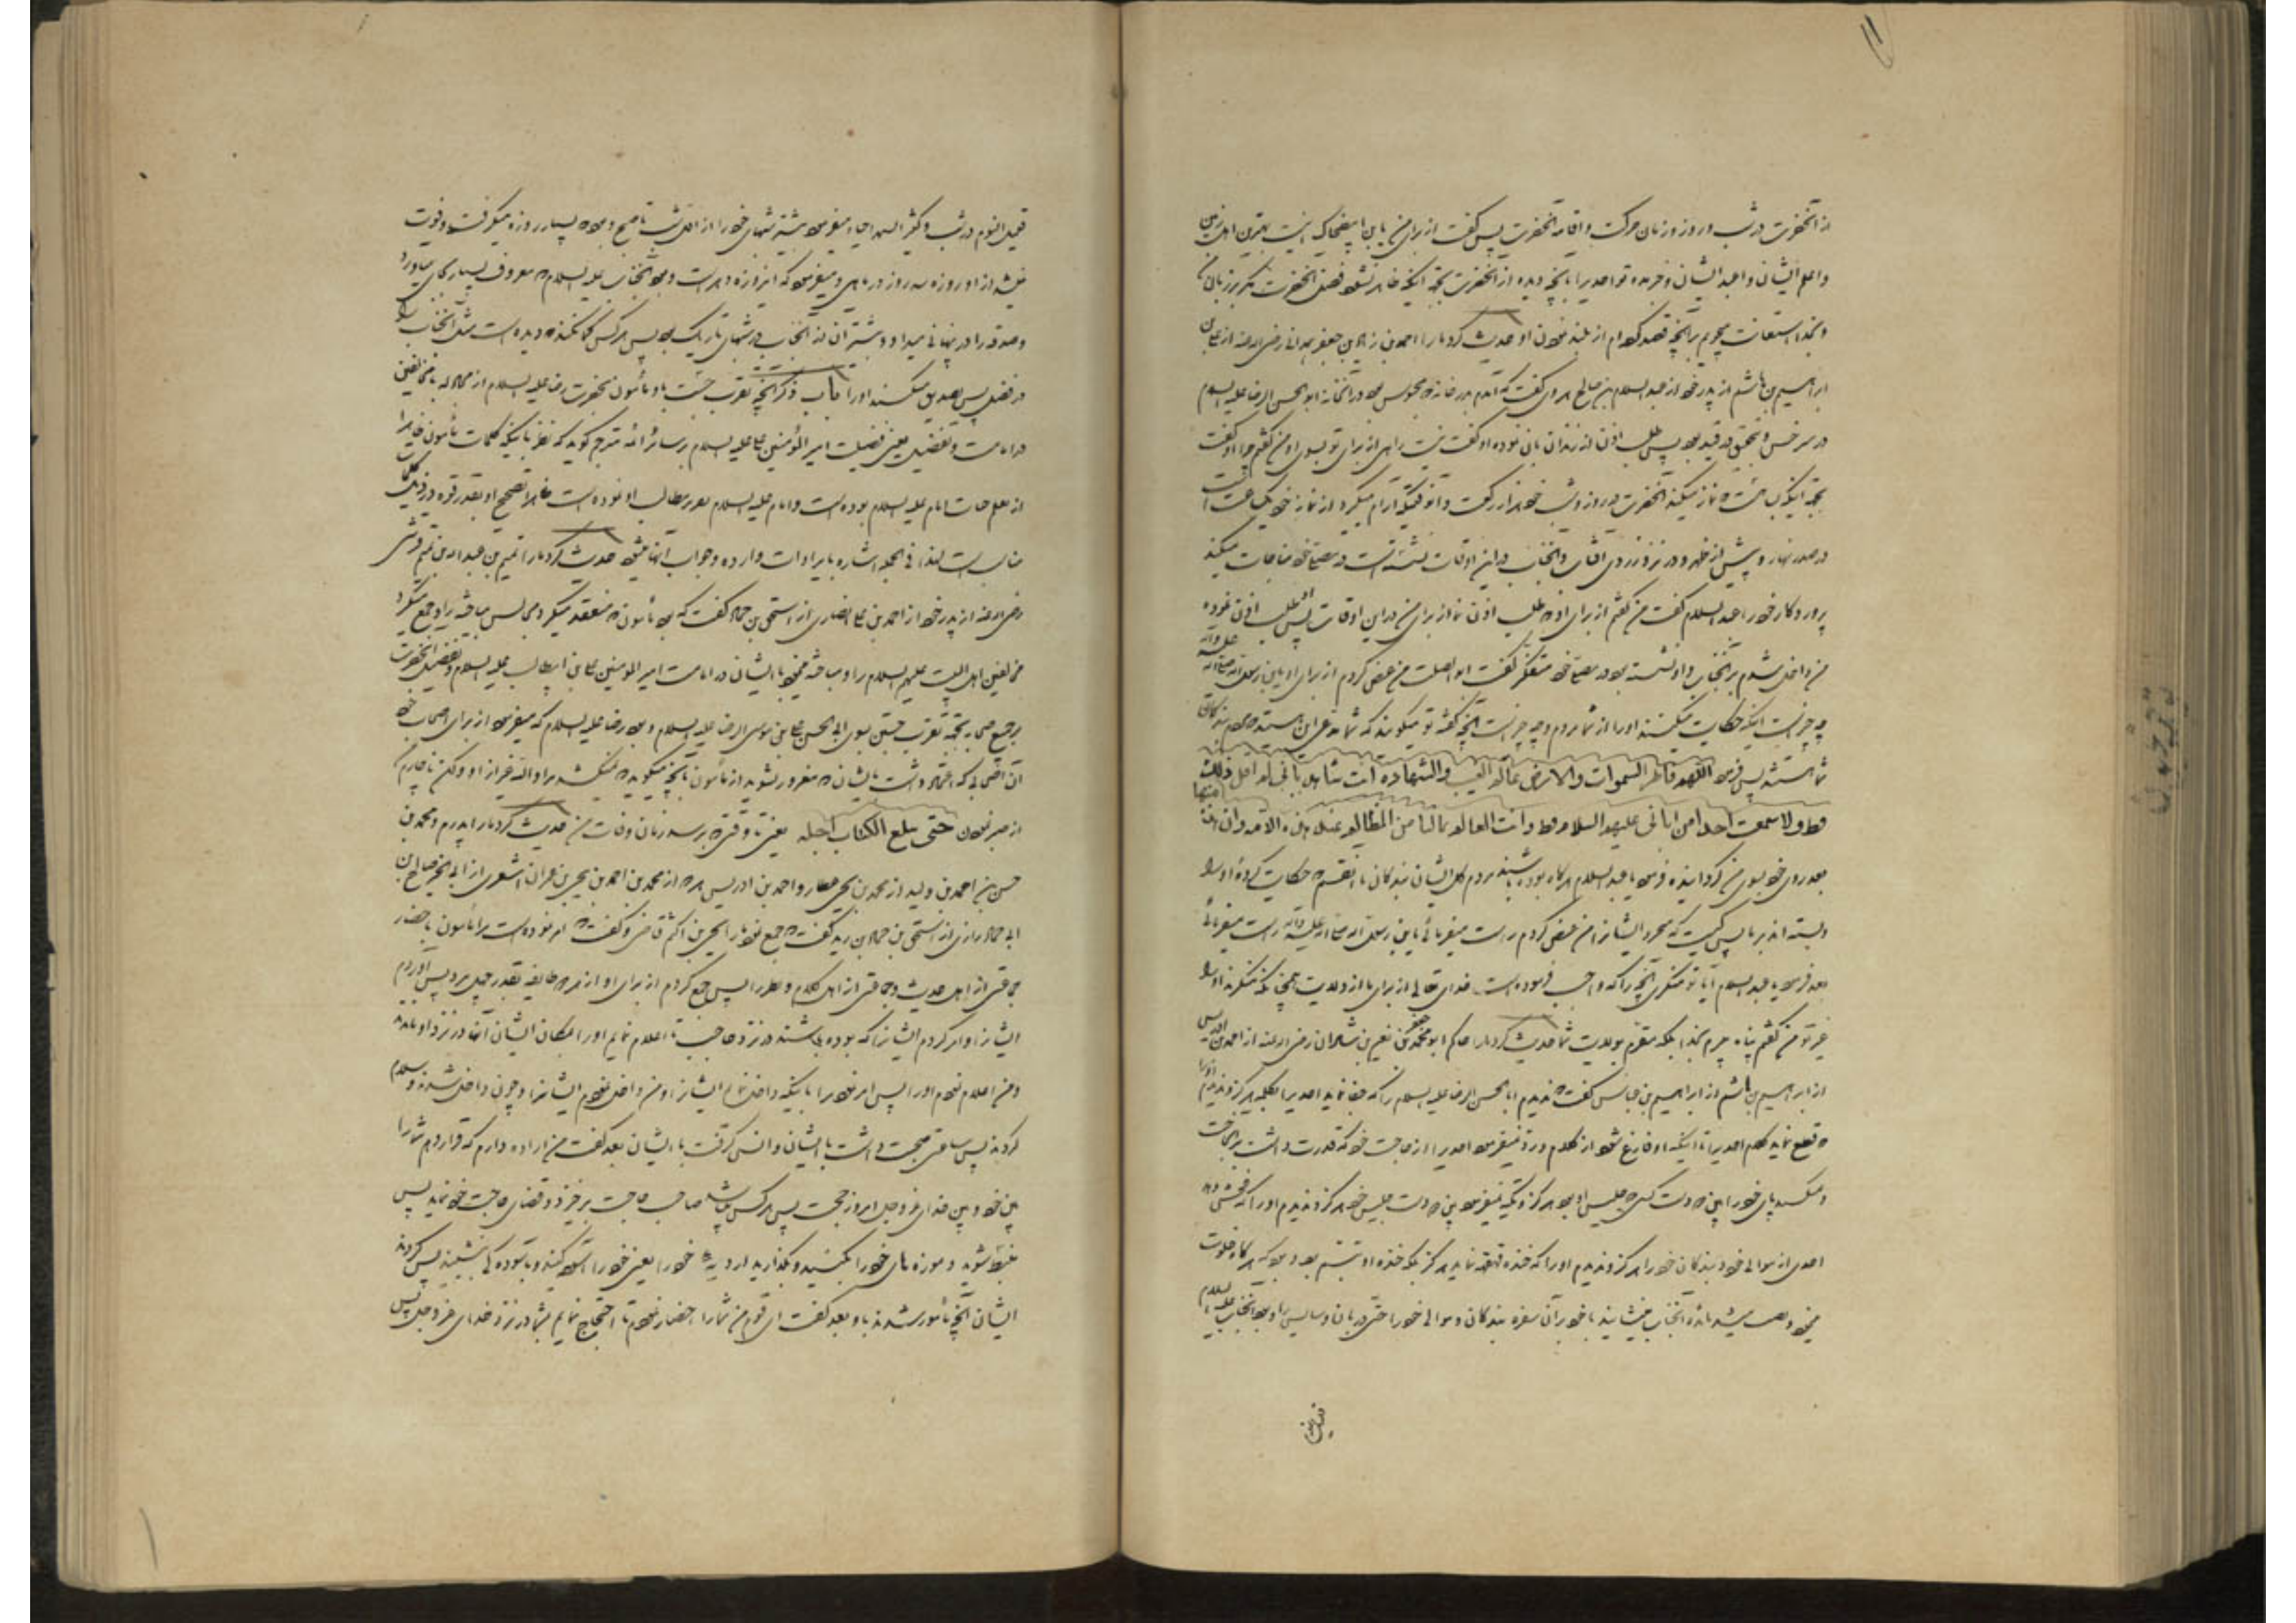 از آنحضرت در شب و روز و زمان حرکت و اقامه آنحضرت پس گفت از برای من یا بن ابی ضحاک اینست بهترین اهل زمین
و اعلم ایشان و اعبد ایشان و خبر مده تو احدیرا بآنچه دیده از آنحضرت بجهة اینکه ظاهر نشود فضل آنحضرت مگر بر زبان من
و بخدا استعانت میجویم بر آنچه قصد کرده‌ام از بلند نمودن او حدیث کرد مارا احمد بن زیاد بن جعفر همدانی رضی الله عنه از علی بن
ابراهیم بن هاشم از پدر خود از عبد السلام بن صالح هروی گفت که آمدم بدر خانه که محبوس بود در آنخانه ابو الحسن الرضا علیه السلام
در سرخس و بتحقیق در قید بود پس طلب اذن از زندان بان نموده او گفت نیست راهی از برای تو بسوی او من گفتم چرا او گفت
بجهة اینکه بسا هست که نماز میکند آنحضرت در روز و شب خود هزار رکعت و آنوقتیکه آرام میگیرد از نماز خود یکساعت است
در صدر نهار و پیش از ظهر و در نزد زردی آفتاب و آنجناب در این اوقات نشسته است در مصلای خود مناجات میکند
پروردگار خود را عبد السلام گفت من گفتم از برای او که طلب اذن نما از برای من در این اوقات پس او طلب اذن نموده
من داخل شدم بر آنجناب و او نشسته بود در مصلای خود متفکر گفت ابو الصلت من عرض کردم از برای او یابن رسول الله صلی الله علیه و آله
چه چیز است اینکه حکایت میکنند اورا از شما مردم و چه چیز است آنچه گفته تو میگویند که شما مدعی این هستید که مردم بندگان
شما هستند پس فرمود اللهم فاطر السموات والارض عالم الغیب والشهادة انت شاهد بانی لم اقل ذلک
قط ولا سمعت احدا من آبائی علیهم السلام قط وانت العالم بمالنا من المظالم عند هذه الامة وان هذه منها
بعد روی خود بسوی من گردانیده فرمود یا عبد السلام هرگاه بوده باشند مردم کل ایشان بندگان ما بانقسم که حکایت کرده‌اند
دانسته‌اند بر ما پس کیست که میخرد ایشانرا من عرض کردم راست میفرمائی یابن رسول الله صلی الله علیه و آله راست میفرمائی
بعد فرمود یا عبد السلام آیا تو منکری آنچه را که واجب فرموده است خدای تعالی از برای ما از ولایت همچنانکه منکرند اورا
غیر تو من گفتم پناه میبرم بخدا بلکه مقرم بولایت شما حدیث کرد مارا حاکم ابو محمد جعفر بن نعیم بن شاذان رضی الله عنه از احمد بن ادریس
از ابراهیم بن هاشم از ابراهیم بن عباس گفت که ندیدم ابا الحسن الرضا علیه السلام را که جفا نماید احدیرا بکلمه هرگز و ندیدم اورا
که قطع نماید کلام احدیرا تا اینکه او فارغ شود از کلام و رد نمیفرمود احدیرا از حاجت خود که قدرت داشت بر آن حاجت
و نمیکشید پای خود را پیش دست کسی که جلیس او بود هرگز و تکیه نمیفرمود پیش دست جلیس خود هرگز و ندیدم اورا که فحش دهد
احدی از موالی خود و بندگان خود را هرگز و ندیدم اورا که خنده قهقهه نماید هرگز بلکه خنده او تبسم بود و بود که هرگاه خلوت
میفرمود و نصب میشد مائده آنجناب مینشانید با خود بر آن سفره بندگان و موالی خود را حتی دربان و سایس را و بود آنجناب علیه السلام
قلیل النوم در شب و کثیر السهر احیا میفرمود بیشتر شبهای خود را از اول شب تا صبح و بود که بسیار روزه میگرفت و فوت
نمیشد از او روزه سه روز در ماهی و میفرمود که این روزه دهر است و بود آنجناب علیه السلام که معروف بسیار بجای میاورد
و صدقه را در پنهانی میداد و بیشتر آن از آنجناب در شبهای تاریک بود پس هر کس گمان کند که دیده است مثل آنجناب را
در فضل پس تصدیق مکنید اورا باب ذکر آنچه تقرب جست باو مأمون بحضرت رضا علیه السلام از مجادله با مخالفین
در امامت و تفضیل یعنی فضیلت امیر المؤمنین علی علیه السلام بر سائر ائمه مترجم گوید که نظر باینکه کلمات مأمون ظاهرا
از اصلاحات امام علیه السلام بوده است و امام علیه السلام مقرر مطالب او نموده است ظاهرا تصحیح او بقدر قوه در ذیل کلمات
مناسب است لهذا فی الجمله اشاره بایرادات وارده و جواب آنها میشود حدیث کرد مارا تمیم بن عبد الله بن تمیم قرشی
رضی الله عنه از پدر خود از احمد بن علی انصاری از اسحق بن حماد گفت که بود مأمون که منعقد میکرد مجالس مباحثه را و جمع میکرد
مخالفین اهل البیت علیهم السلام را و مباحثه مینمود با ایشان در امامت امیر المومنین علی بن ابیطالب علیه السلام و تفضیل آنحضرت
بر جمیع صحابه بجهة تقرب جستن بسوی ابی الحسن علی بن موسی الرضا علیه السلام و بود رضا علیه السلام که میفرمود از برای اصحاب خود
آن اصحابی که اعتماد داشت بایشان که مغرور نشوید از مأمون بآنچه میگوید که نمیکشد مرا والله غیر از او و لکن ناچارم
از صبر نمودن حتی یبلغ الکتاب اجله یعنی تا وقتی که برسد زمان وفات من حدیث کرد مارا پدرم و محمد بن
حسن بن احمد بن ولید از محمد بن یحیی عطار و احمد بن ادریس هر دو از محمد بن احمد بن یحیی بن عمران اشعری از ابی الحسین صالح بن
ابی حماد رازی از اسحق بن حماد بن زید گفت که جمع نمود مارا یحیی بن اکثم قاضی و گفت که امر نموده است مرا مأمون باحضار
جماعتی از اهل حدیث و جماعتی از اهل کلام و نظر را پس جمع کردم از برای او از هر دو طایفه بقدر چهل مرد پس آوردم
ایشانرا و امر کردم ایشانرا که بوده باشند در نزد حاجب تا اعلام نمایم اورا بمکان ایشان آنها در نزد او ماندند
و من اعلام نمودم اورا پس امر نمود مرا باینکه داخل نمایم ایشانرا و من داخل نمودم ایشانرا و چون داخل شدند و سلام
کردند پس ساعتی صحبت داشت با ایشان و انس گرفت با ایشان بعد گفت من اراده دارم که قرار دهم شما را
بین خود و بین خدای عز و جل امروز حجت پس هر کس باشد صاحب حاجت برخیزد و قضای حاجت خود نماید پس
منبسط شوید و موزه‌های خود را بکنید و بگذارید ردای خود را یعنی خود را آسوده کنید و بآسودگی بنشینید پس کردند
ایشان آنچه مأمور شدند باو بعد گفت ای قوم من شما را احضار نمودم تا احتجاج نمایم بشما در نزد خدای عز و جل پس